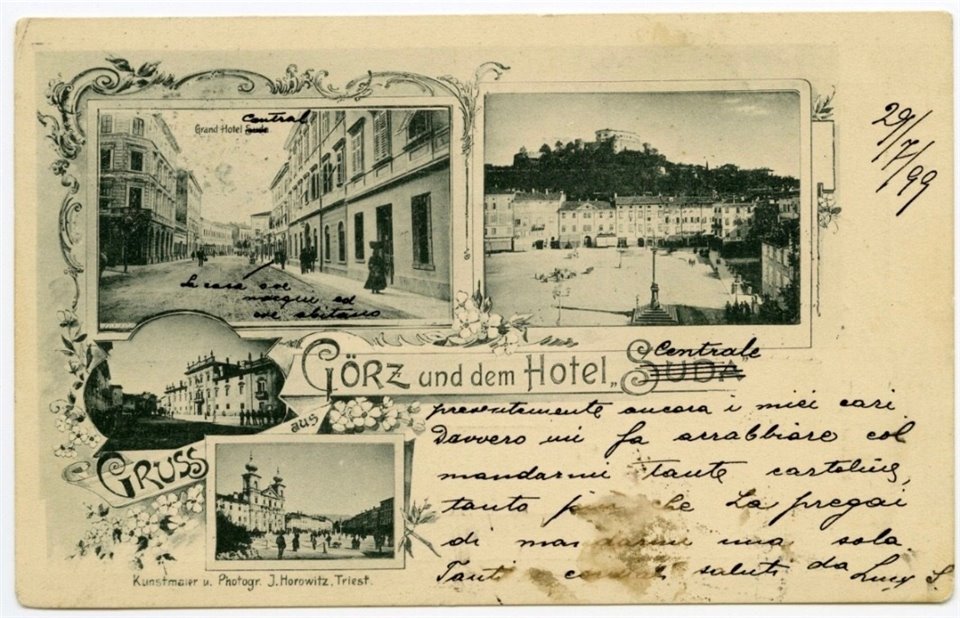 Central
Grand Hotel Suda
29/7/99
La casa ove
nacqui ed
ove abitano
Centrale
GÖRZ und dem Hotel „SUDA"
presentemente ancora i miei cari
Davvero mi fa arrabbiare col
mandarmi tante cartoline,
tanto più che La pregai
di mandarmi una sola
Tanti saluti da Lucy S.
GRUSS aus
Kunstmaier u. Photogr. J. Horowitz, Triest.